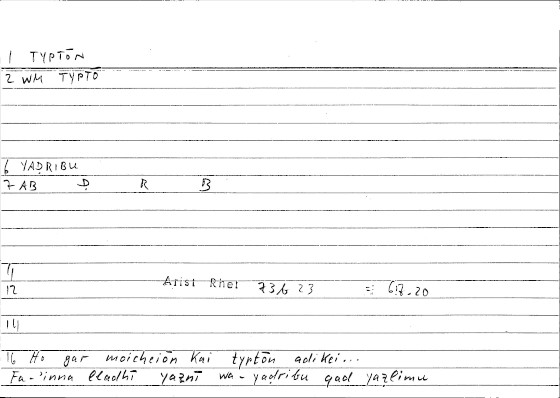 1 TYPTŌN
2 WM TYPTO
6 YAḌRIBU
7 AB Ḍ R B
11
12 Arist Rhet 73b 23 = 67.20
14
16 Ho gar moicheiōn kai typtōn adikei...
Fa-'inna lladhī yaznī wa-yaḍribu qad yaẓlimu